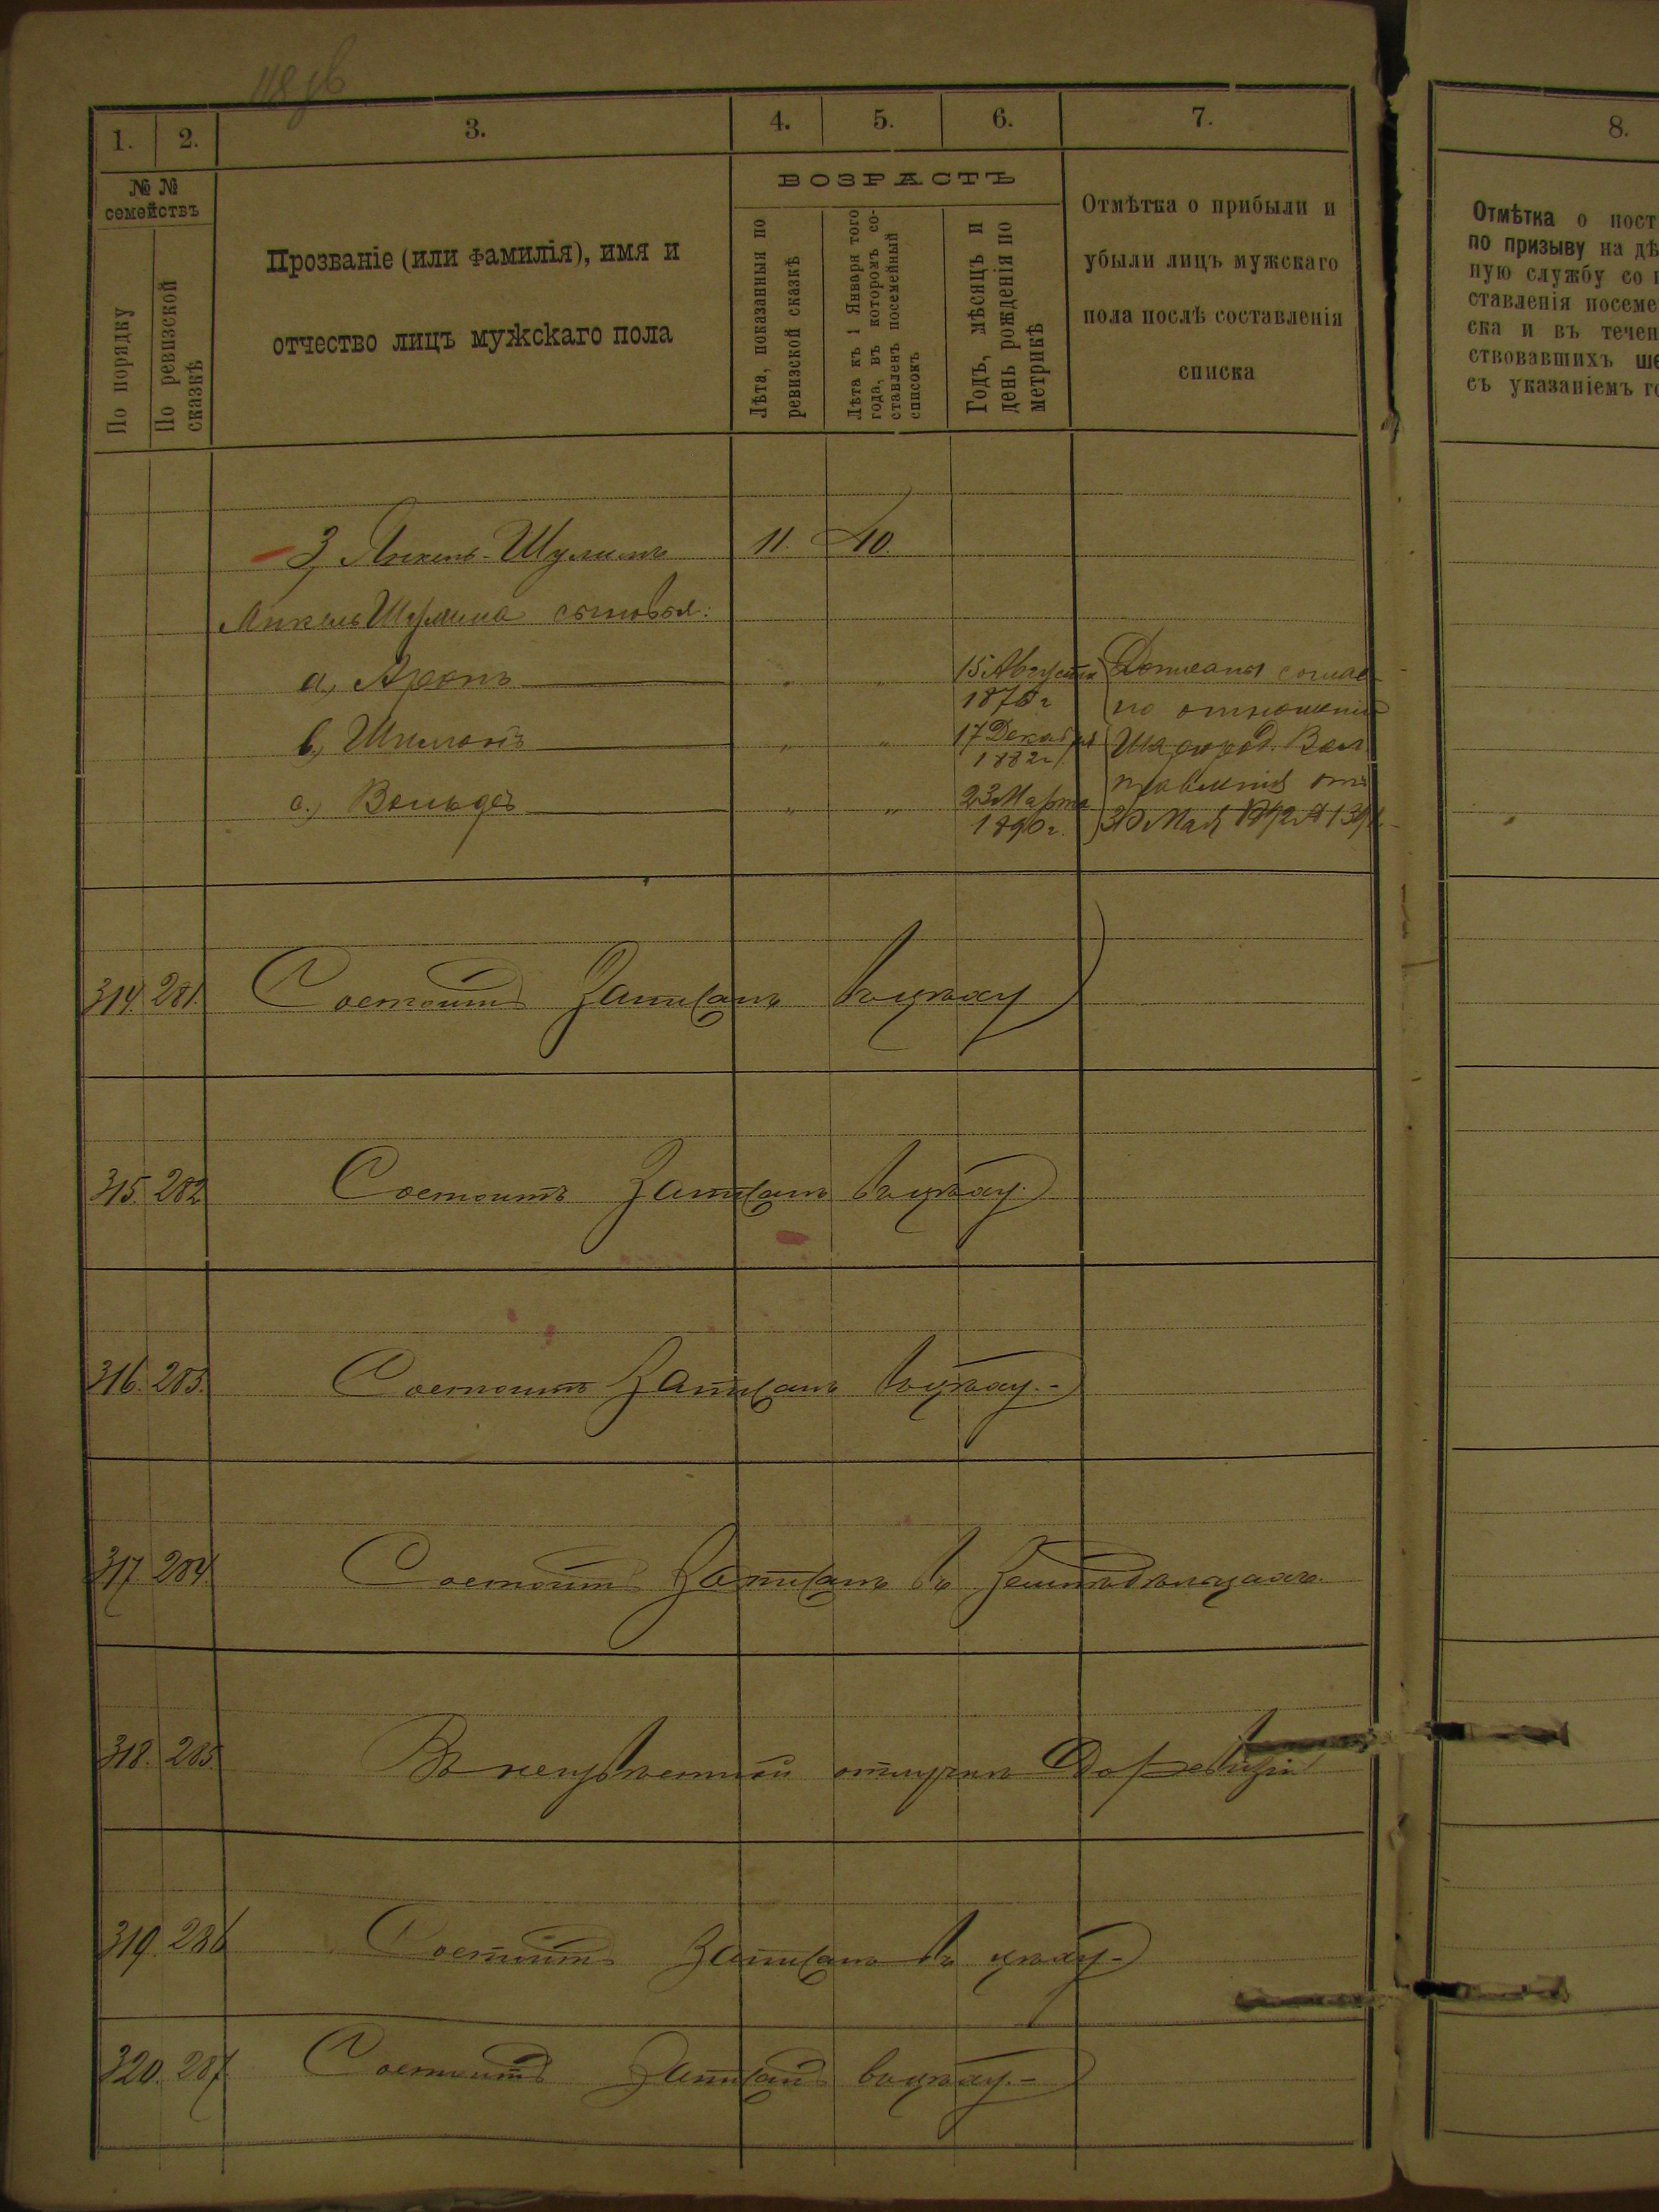 118 об
1. 2. 3. 4. 5. 6. 7.
№ №
семействъ
По порядку
По ревизской
сказкѣ
Прозваніе (или фамилія), имя и
отчество лицъ мужскаго пола
ВОЗРАСТЪ
Лѣта, показанныя по
ревизской сказкѣ
Лѣта къ 1 Января того
года, въ которомъ со-
ставленъ посемейный
списокъ
Годъ, мѣсяцъ и
день рожденія по
метрикѣ
Отмѣтка о прибыли и
убыли лицъ мужскаго
пола послѣ составленія
списка
3, Янкель-Шулимъ 11. 40.
Янкель Шулима сыновья:
а, Аронъ " " 15 Августа
в, Шимонъ " " 17 Декабря
1882 г.
с.) Вольфъ " " 23 Марта
1890 г.
Дописаны соглас-
но отношенія
Шаргород. Вол.
правленія отъ
314. 281. Состоитъ записанъ въ цѣху
315. 282 Состоитъ записанъ въ цѣху.
316. 283. Состоитъ записанъ въ цѣху.-
317. 284. Состоитъ записанъ въ земледѣльцахъ.
318. 285. Въ неизвѣстной отлучкѣ до ревизіи
319. 286 Состоитъ записанъ въ цѣху-
320. 287. Состоитъ записанъ въ цѣху.-
8.
Отмѣтка о пост
по призыву на дѣ
ную службу со
ставленія посеме
ска и въ течен
ствовавшихъ ше
съ указаніемъ го